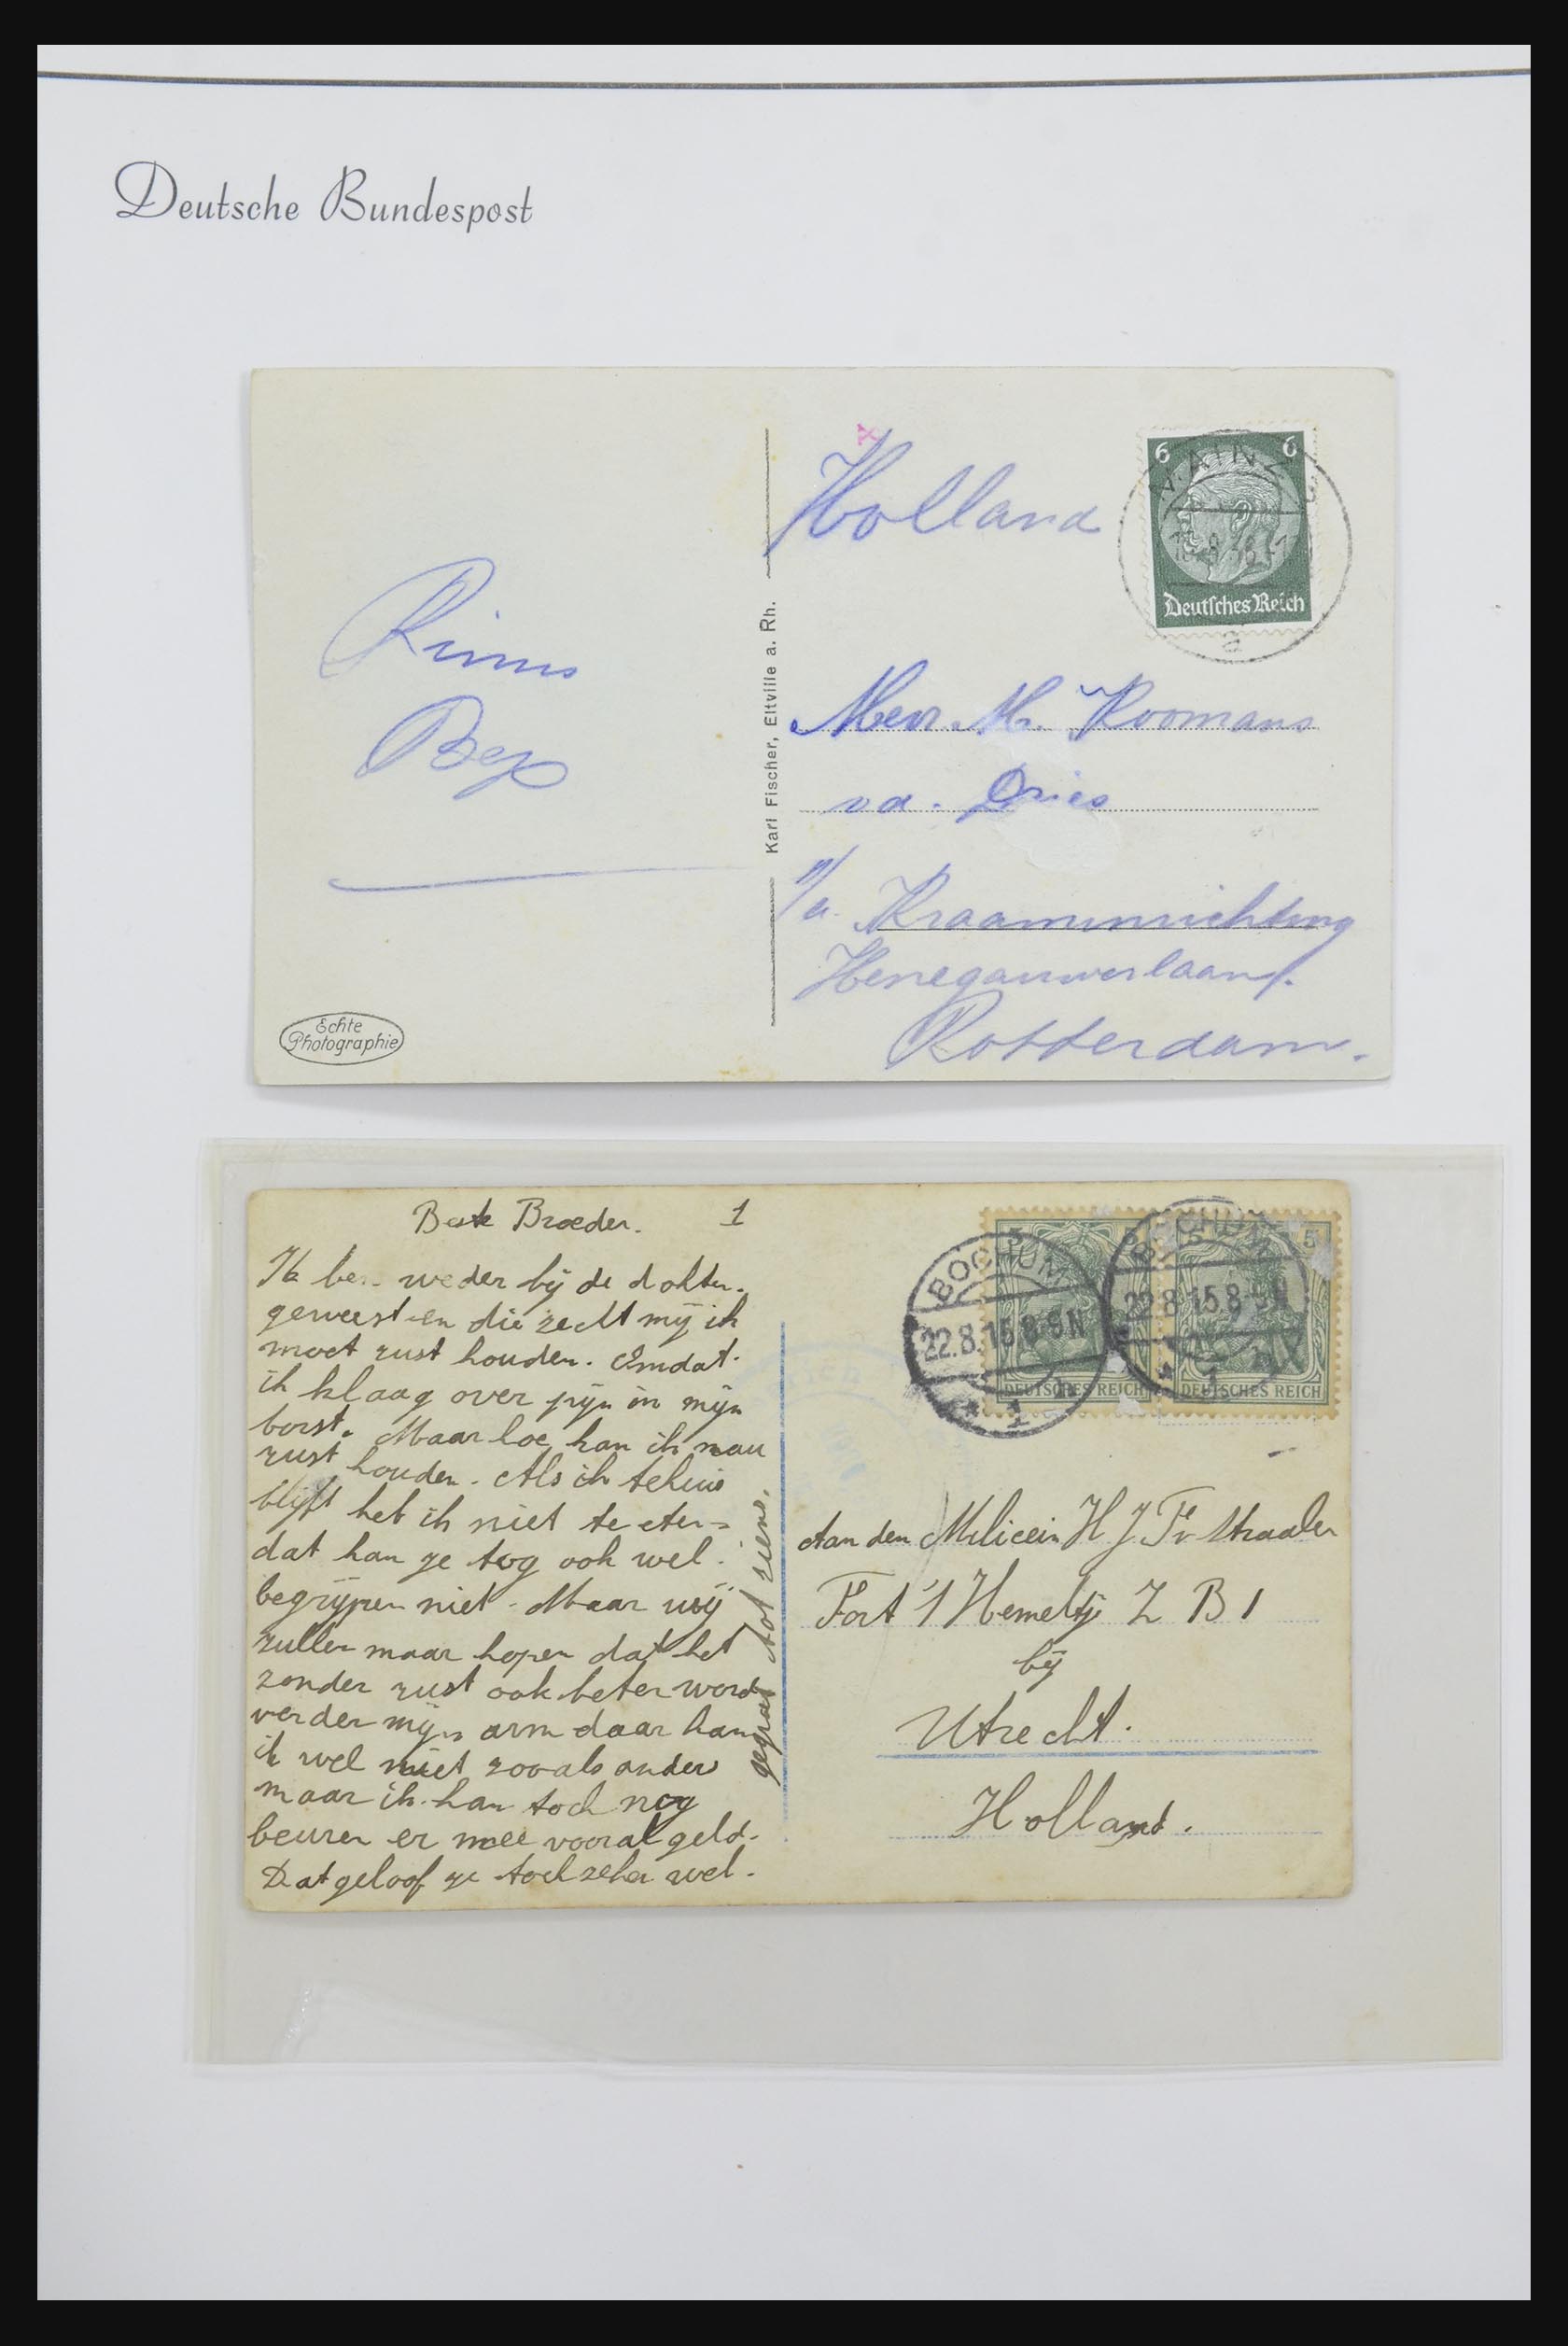 Deutsche Bundespost
Holland
6 6
MAINZ
Deutsches Reich
Rinus
Bep
Karl Fischer, Eltville a. Rh.
Mevr. M. Koomans
va. Dries
p/a. Kraaminrichting
Henegouwerlaan
Rotterdam.
Echte
Photographie
Beste Broeder. 1
Ik ben weder bij de dokter.
geweest en die zecht mij ik
moet rust houden. Omdat.
ik klaag over pijn in mijn
borst. Maar hoe kan ik nou
rust houden. Als ik tehuis
blijft heb ik niet te eten
dat kan ge tog ook wel.
begrijpen niet. Maar wij
zullen maar hopen dat het
zonder rust ook beter word
verder mijn arm daar kan
ik wel niet zooals anders
maar ik kan toch nog
beuren er mee vooral geld.
Dat geloof ge toch zeker wel.
gegroet tot ziens.
BOCHUM
22.8.15.8-9N
* 1
BOCHUM
22.8.15.8-9N
* 1
5
5
DEUTSCHES REICH
DEUTSCHES REICH
Aan den Milicein H J Fv Straalen
Fort 't Hemeltje Z B 1
bij
Utrecht.
Holland.